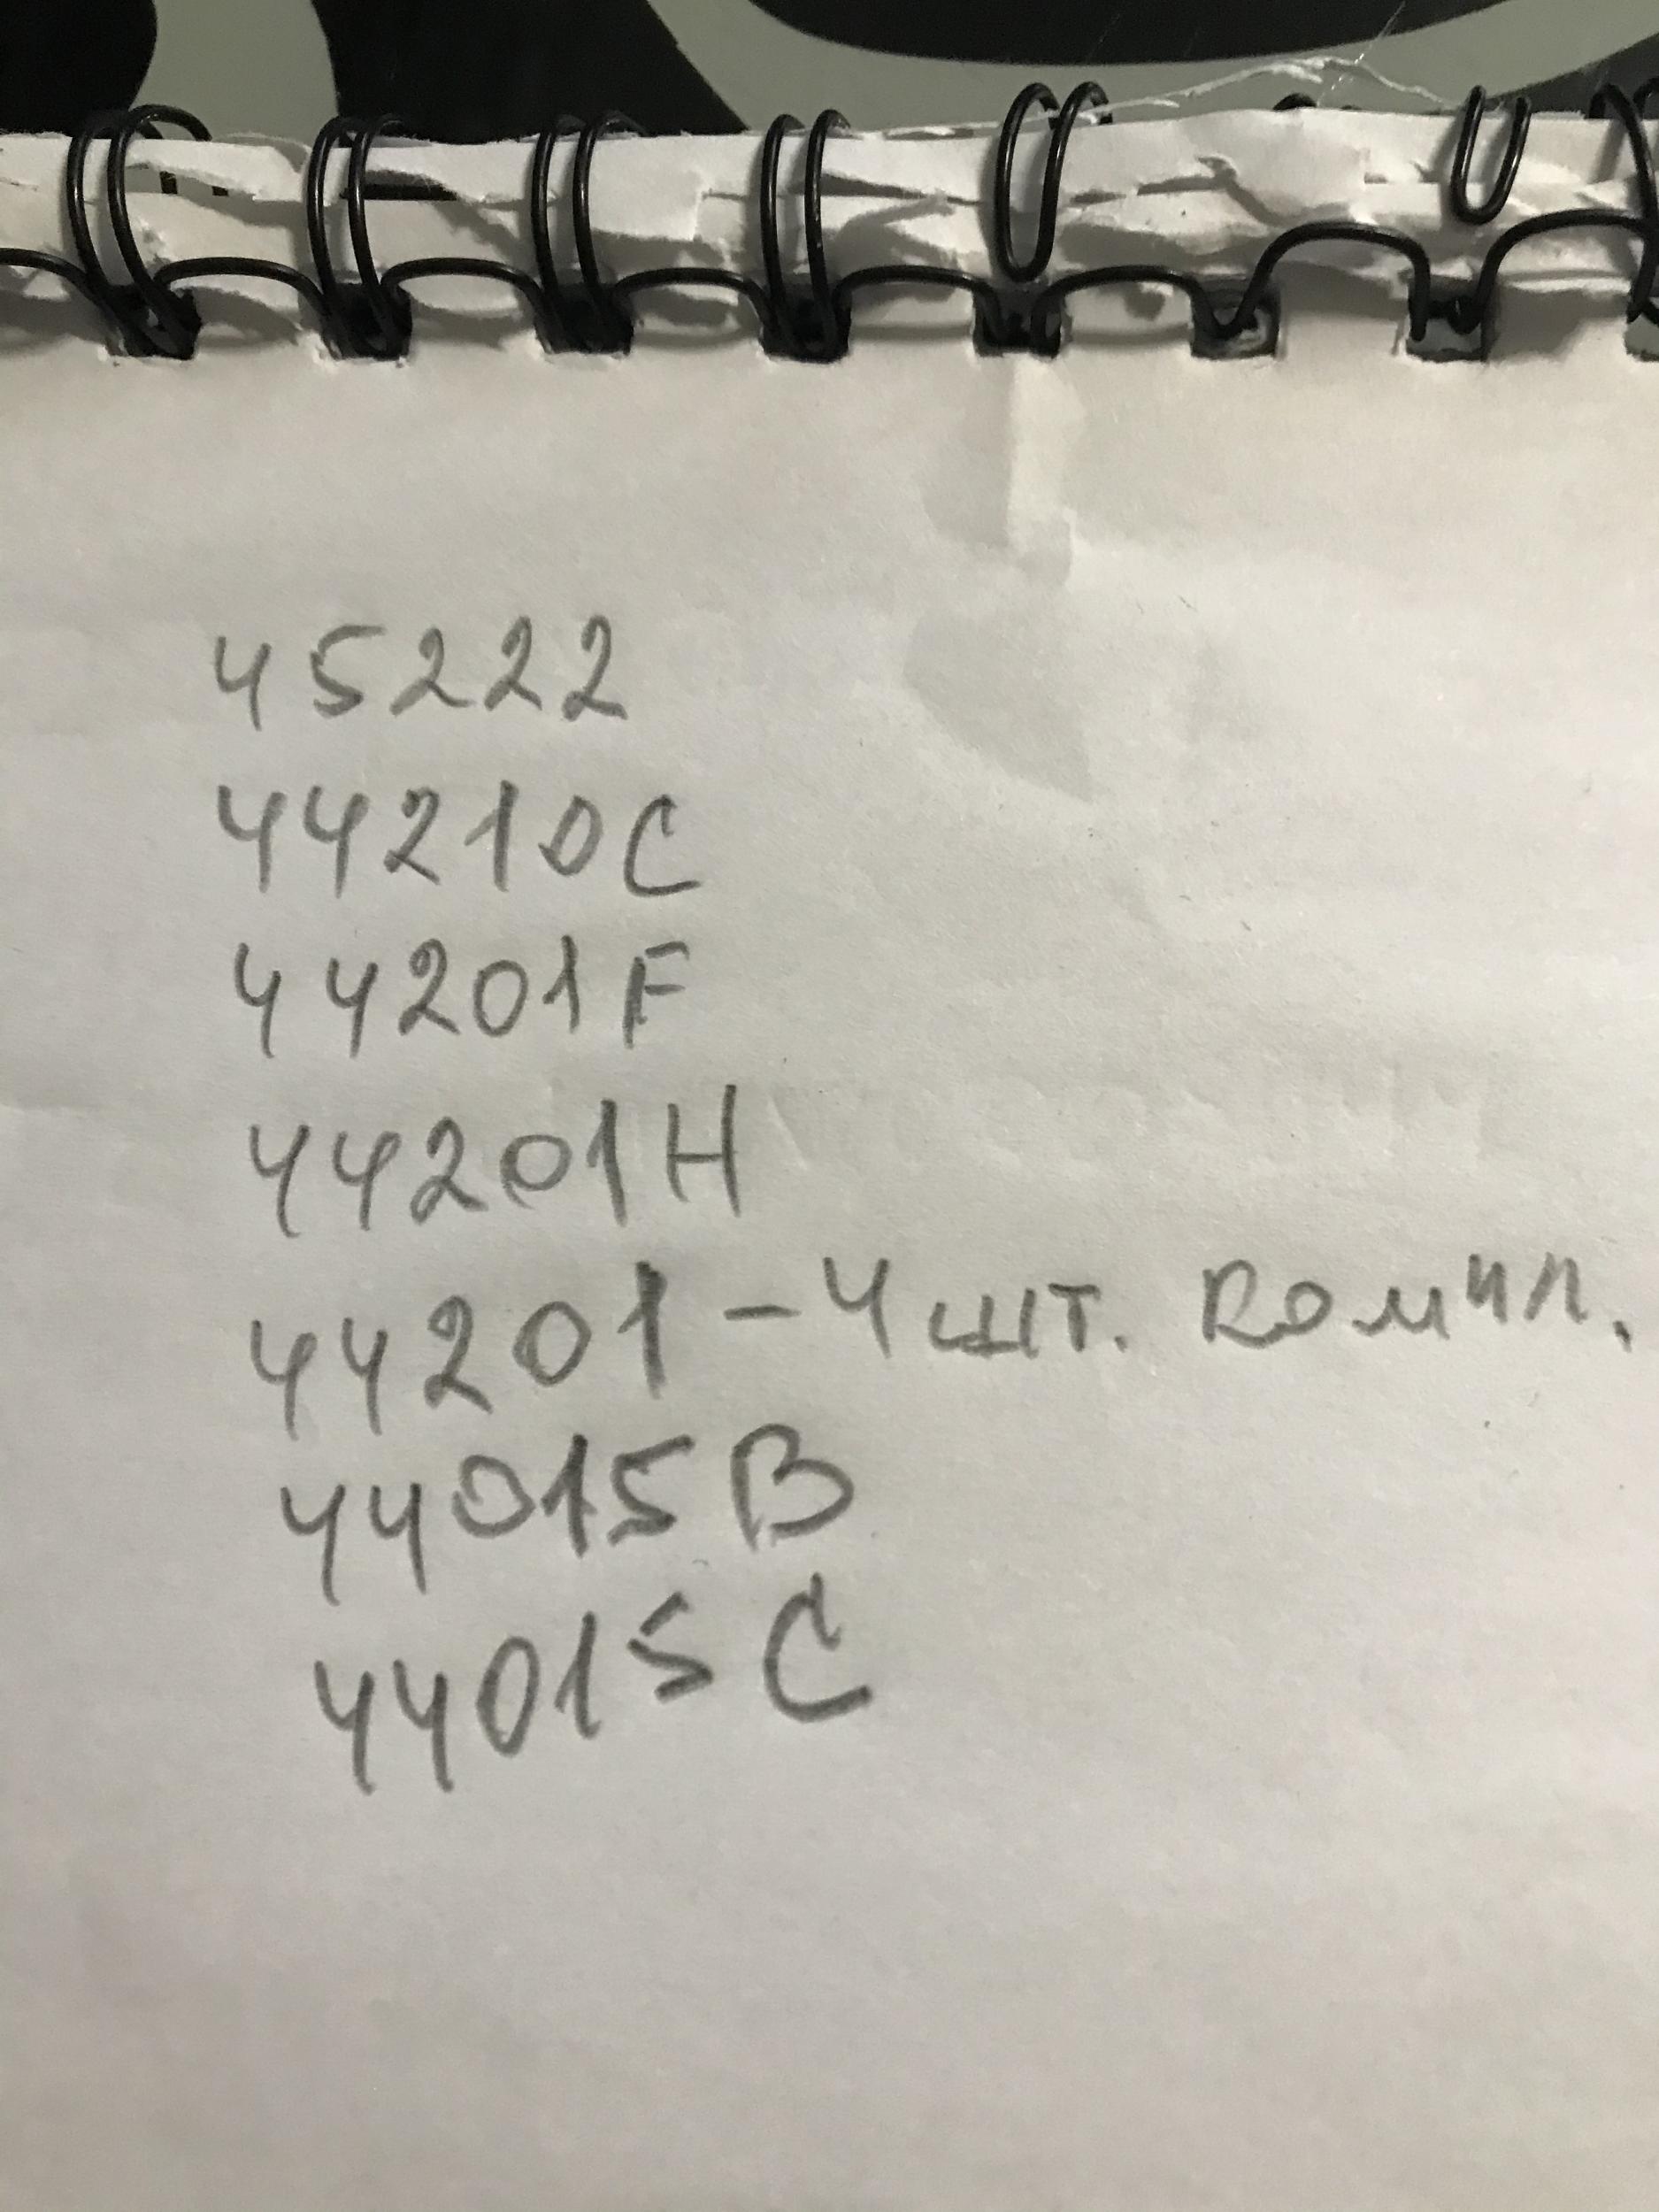 45222
44210C
44201F
44201H
44201 - 4 шт.
44015B
44015C